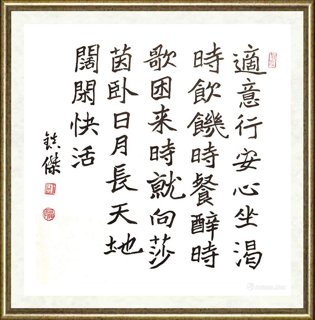 適意行安心坐渴
時飲饑時餐醉時
歌困来時就向莎
茵卧日月長天地
闊閑快活
鎂傑